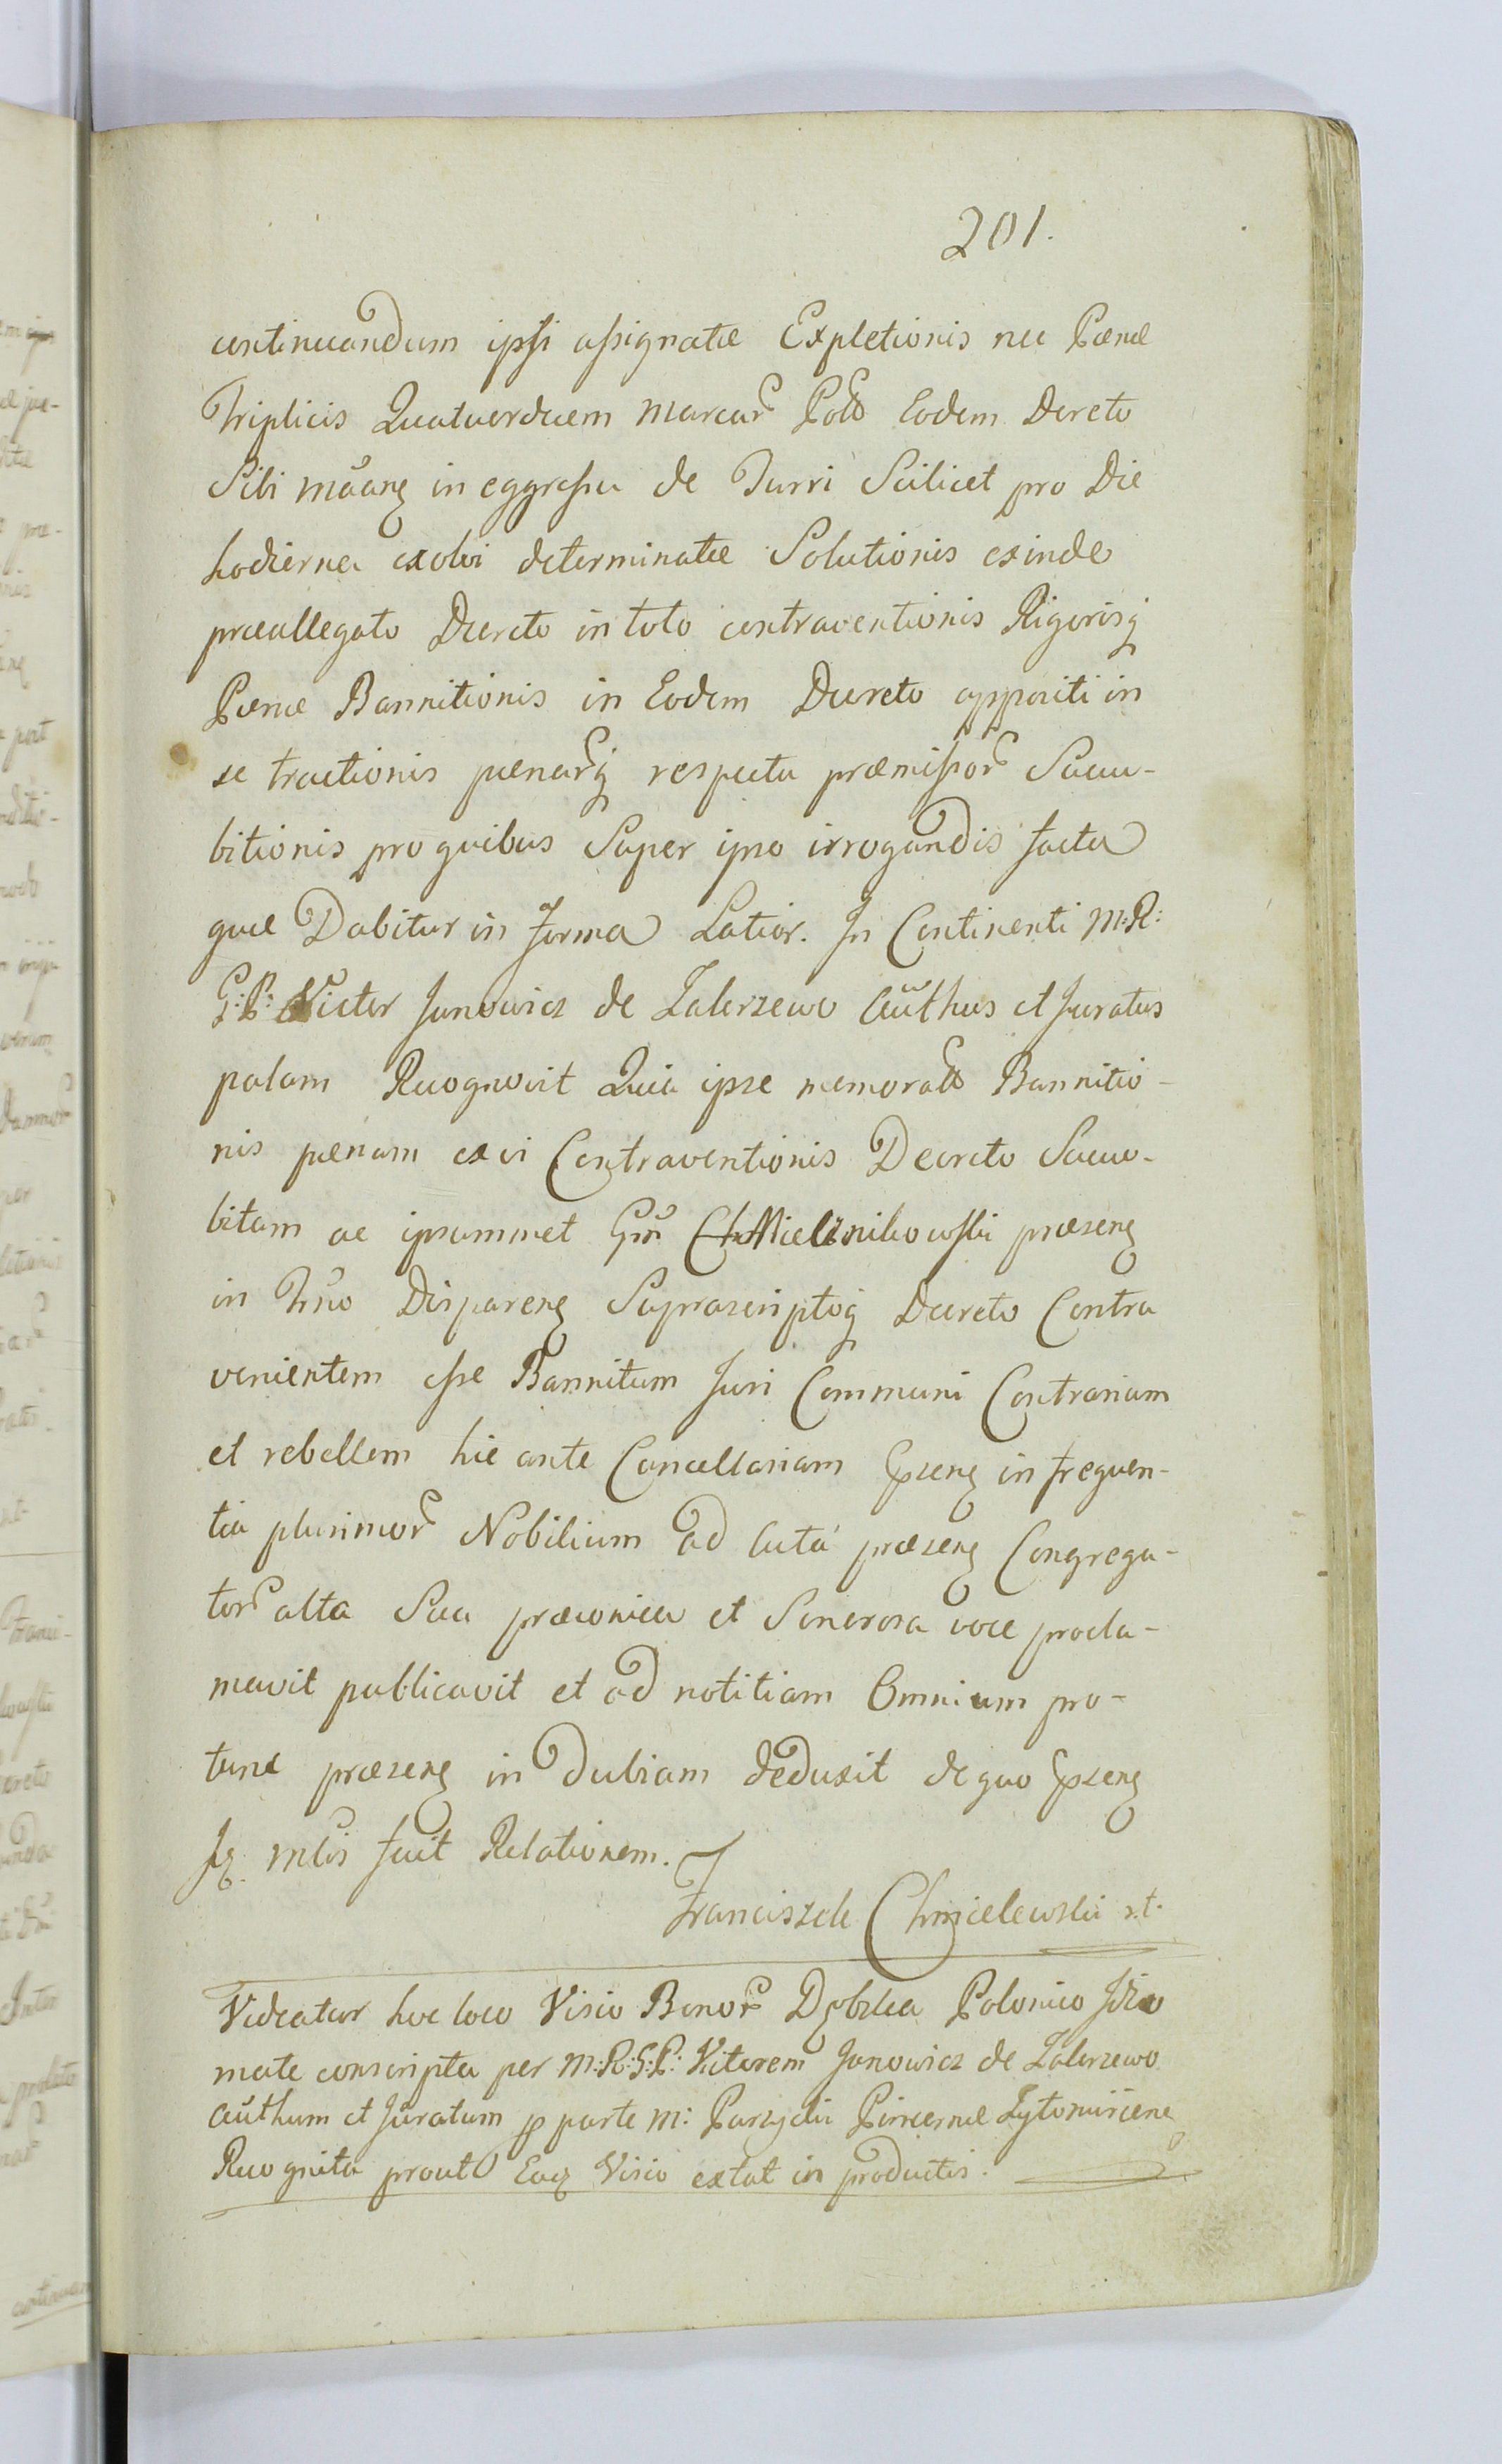 201.
continuandum ipsi assignatæ Expletionis nec Pænæ
Triplicis Quatuordecem Marcar Pols Eodem Decreto
Sibi in eggressu de Turri Scilicet pro Die
hodierna exolvi determinatæ Solutionis exinde
præallegato Decreto in toto contraventionis Rigorisq
Pænæ Bannitionis in Eodem Decreto appositi in
se tractionis pænarq respectu præmissor Succu-
bitionis pro quibus Super ipso irrogandis facta
quæ Dabitur in Forma Latior. In Continenti M:R:
G:P: Victor Janowicz de Zalerzewo Authus et Juratus
palam Recognovit Quia ipse memorata Bannitio-
nis pænam ex vi Contraventionis Decreto Succu-
bitam ac ipsummet præsens
in Disparens Suprascriptoq Decreto Contra
venientem esse Bannitum Juri Communi Contrarium
et rebellem hic ante Cancellariam in frequen-
tia plurimor Nobilium ad acta præsens Congrega-
tor alta Sua præconica et Sonorosa voce procla-
mavit publicavit et ad notitiam Omnium pro-
tunc præsens in dubiam deduxit de quo
fecit Relationem.
Franciszek Chmielewski
Videatur hoc loco Visio Bonor Dębska Polonico Idio
mate conscripta per M:R:G:P: Victorem Janowicz de Zalerzewo
Authum et Juratum p parte M: Pincernæ Zytomiriens
Recognita prout Visio extat in productis.